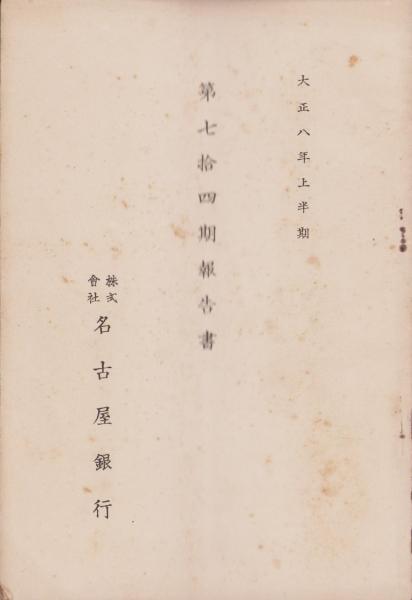 大正八年上半期
第七拾四期報告書
株式會社
名古屋銀行